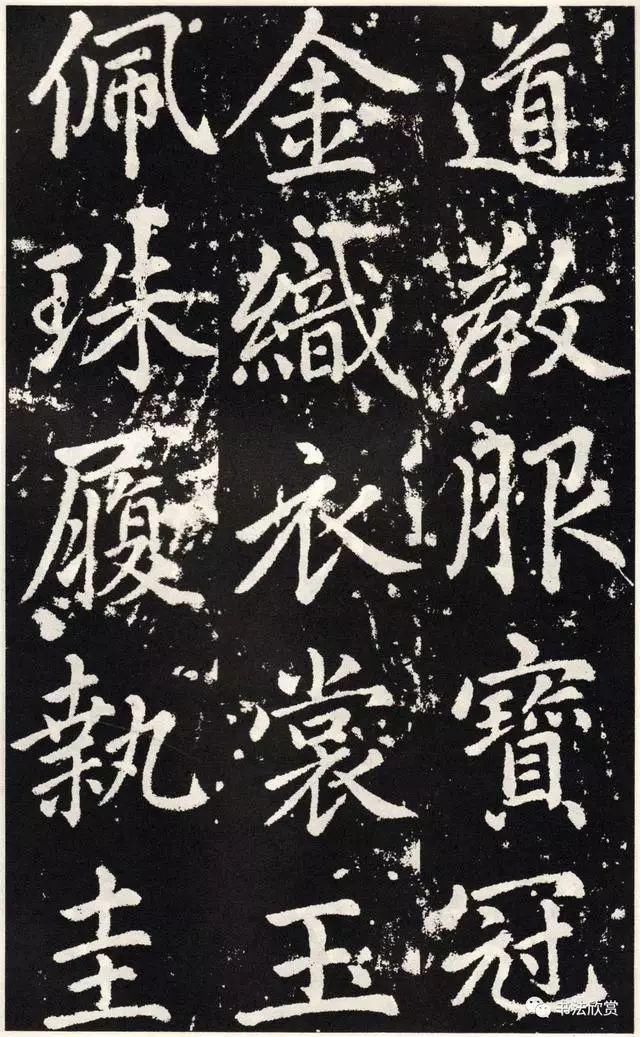 道教服寶冠
金織衣裳玉
佩珠履執圭
书法欣赏